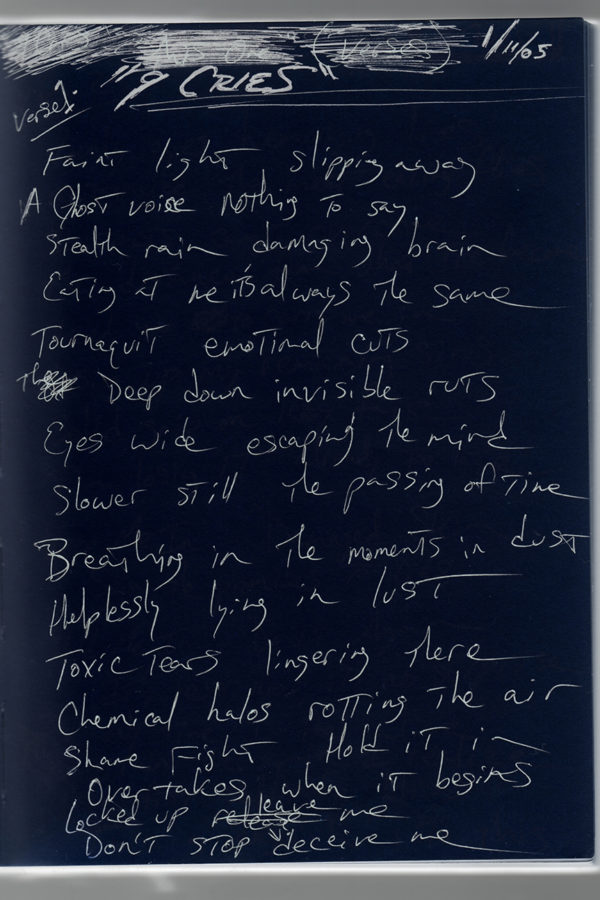 (Verses) 1/11/05
"9 CRIES"
Verse1:
Faint light slipping away
A Ghost voice nothing to say
Stealth rain damaging brain
Eating at me it's always the same
Tournaquit emotional cuts
The Deep down invisible ruts
Eyes wide escaping the mind
Slower still the passing of time
Breathing in the moments in dust
Helplessly lying in lust
Toxic Tears lingering there
Chemical halos rotting the air
Shame Fight Hold it in
Overtakes when it begins
leave
Locked up release me
Don't stop deceive me